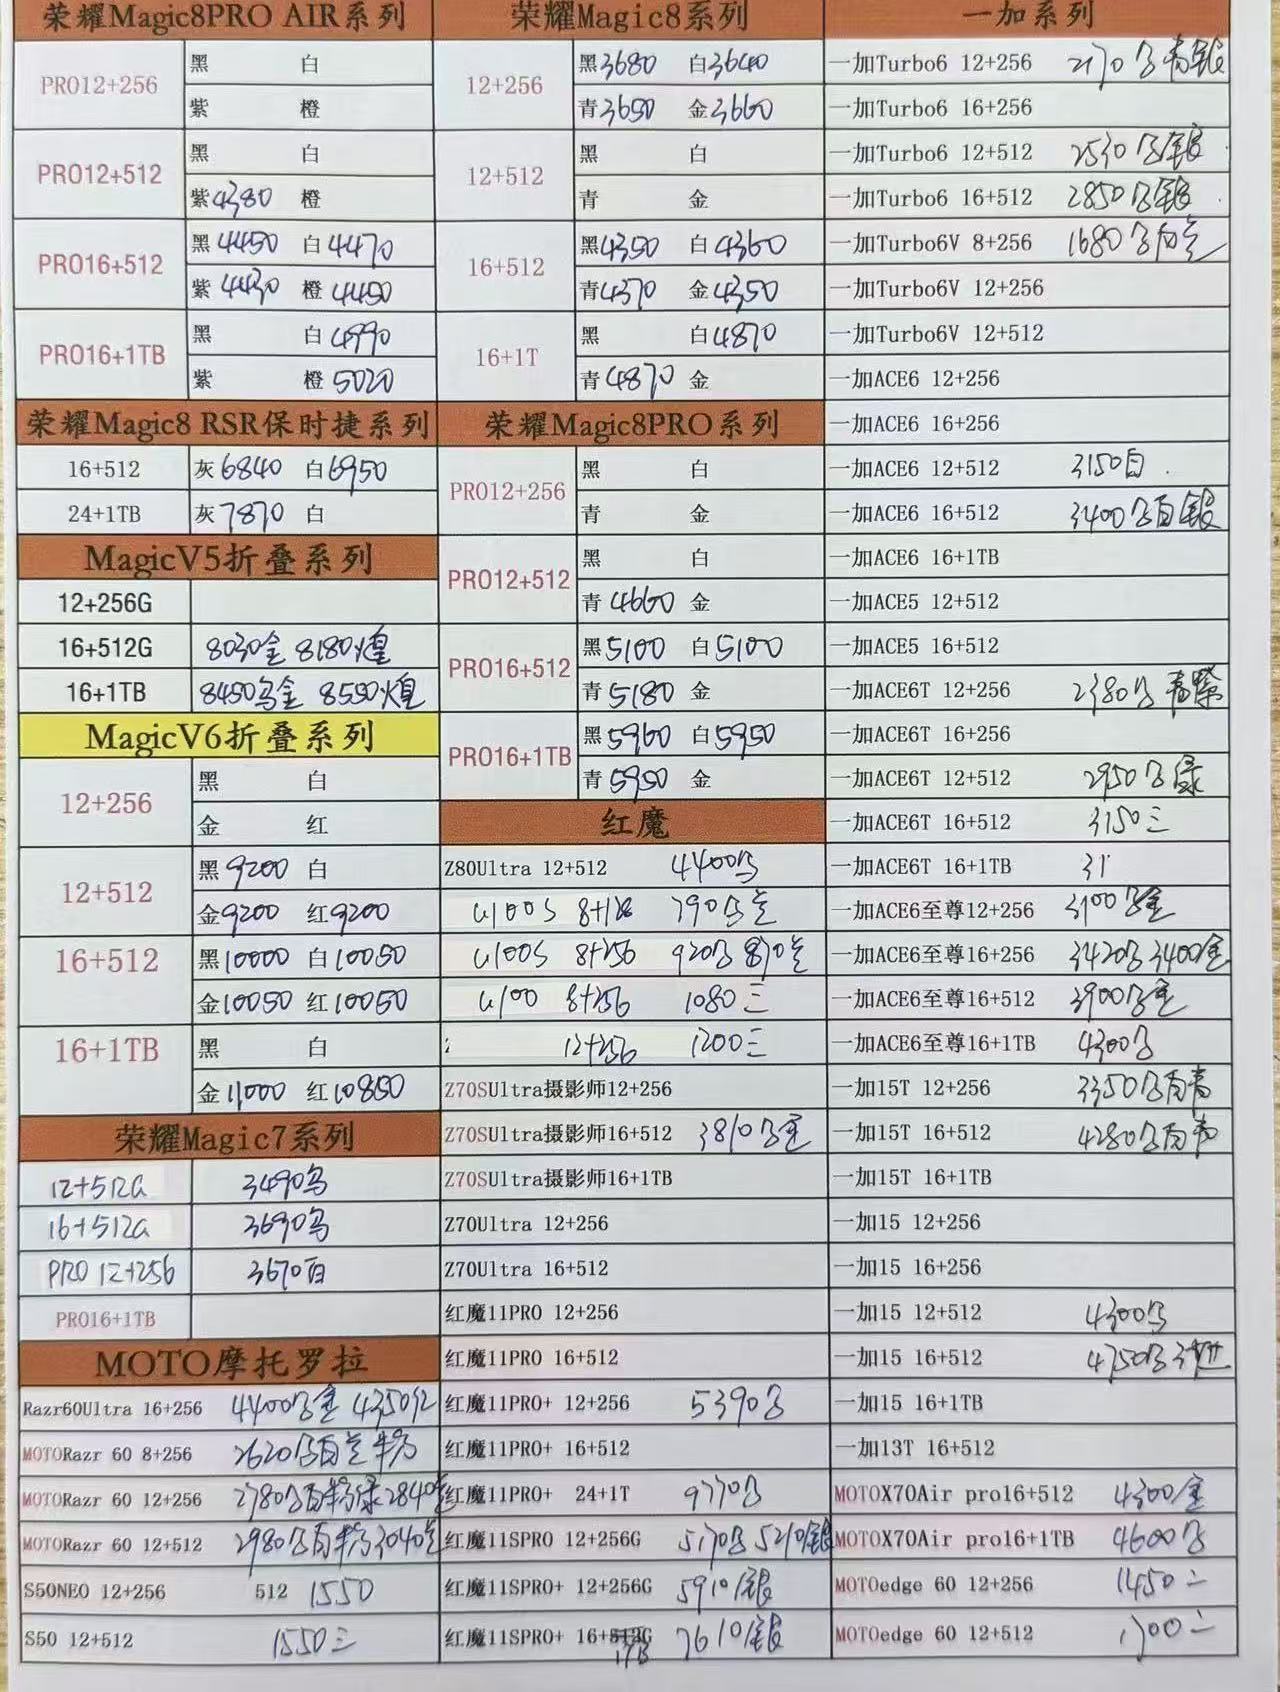 荣耀Magic8PRO AIR系列
PRO12+256
黑 白
紫 橙
PRO12+512
黑 白
紫4380 橙
PRO16+512
黑4450 白4470
紫4430 橙4450
PRO16+1TB
黑 白4990
紫 橙5020
荣耀Magic8 RSR保时捷系列
16+512 灰6840 白6950
24+1TB 灰7870 白
MagicV5折叠系列
12+256G
16+512G 8030金 8180煌
16+1TB 8450乌金 8550煌
MagicV6折叠系列
12+256
黑 白
金 红
12+512
黑9200 白
金9200 红9200
16+512
黑10000 白10050
金10050 红10050
16+1TB
黑 白
金11000 红10850
荣耀Magic7系列
12+512G 3490乌
16+512G 3690乌
PRO 12+256 3670白
PRO16+1TB
MOTO摩托罗拉
Razr60Ultra 16+256 4400 4350红
MOTORazr 60 8+256 2620
MOTORazr 60 12+256 2780 2840
MOTORazr 60 12+512 2980 3040
S50NEO 12+256 512 1550
S50 12+512 1550三
荣耀Magic8系列
12+256
黑3680 白3640
青3650 金3660
12+512
黑 白
青 金
16+512
黑4350 白4360
青4370 金4350
16+1T
黑 白4870
青4870 金
荣耀Magic8PRO系列
PRO12+256
黑 白
青 金
PRO12+512
黑 白
青4660 金
PRO16+512
黑5100 白5100
青5180 金
PRO16+1TB
黑5960 白5950
青5950 金
红魔
Z80Ultra 12+512 4400乌
u100S 8+128 790
u100S 8+256 920 870
u100 8+256 1080三
12+256 1200三
Z70SUltra摄影师12+256
Z70SUltra摄影师16+512 3810
Z70SUltra摄影师16+1TB
Z70Ultra 12+256
Z70Ultra 16+512
红魔11PRO 12+256
红魔11PRO 16+512
红魔11PRO+ 12+256 5390
红魔11PRO+ 16+512
红魔11PRO+ 24+1T 9770
红魔11SPRO 12+256G 5170 5210银
红魔11SPRO+ 12+256G 5910银
红魔11SPRO+ 16+512G 1TB 7610银
一加系列
一加Turbo6 12+256 2170 青银
一加Turbo6 16+256
一加Turbo6 12+512 2530 银
一加Turbo6 16+512 2850 银
一加Turbo6V 8+256 1680
一加Turbo6V 12+256
一加Turbo6V 12+512
一加ACE6 12+256
一加ACE6 16+256
一加ACE6 12+512 3150白
一加ACE6 16+512 3400 白银
一加ACE6 16+1TB
一加ACE5 12+512
一加ACE5 16+512
一加ACE6T 12+256 2380 青紫
一加ACE6T 16+256
一加ACE6T 12+512 2950 绿
一加ACE6T 16+512 3150三
一加ACE6T 16+1TB 31
一加ACE6至尊12+256 3100
一加ACE6至尊16+256 3420 3400金
一加ACE6至尊16+512 3900
一加ACE6至尊16+1TB 4300
一加15T 12+256 3350
一加15T 16+512 4280
一加15T 16+1TB
一加15 12+256
一加15 16+256
一加15 12+512 4300乌
一加15 16+512 4750
一加15 16+1TB
一加13T 16+512
MOTOX70Air pro16+512 4300金
MOTOX70Air pro16+1TB 4600
MOTOedge 60 12+256 1450二
MOTOedge 60 12+512 1700二